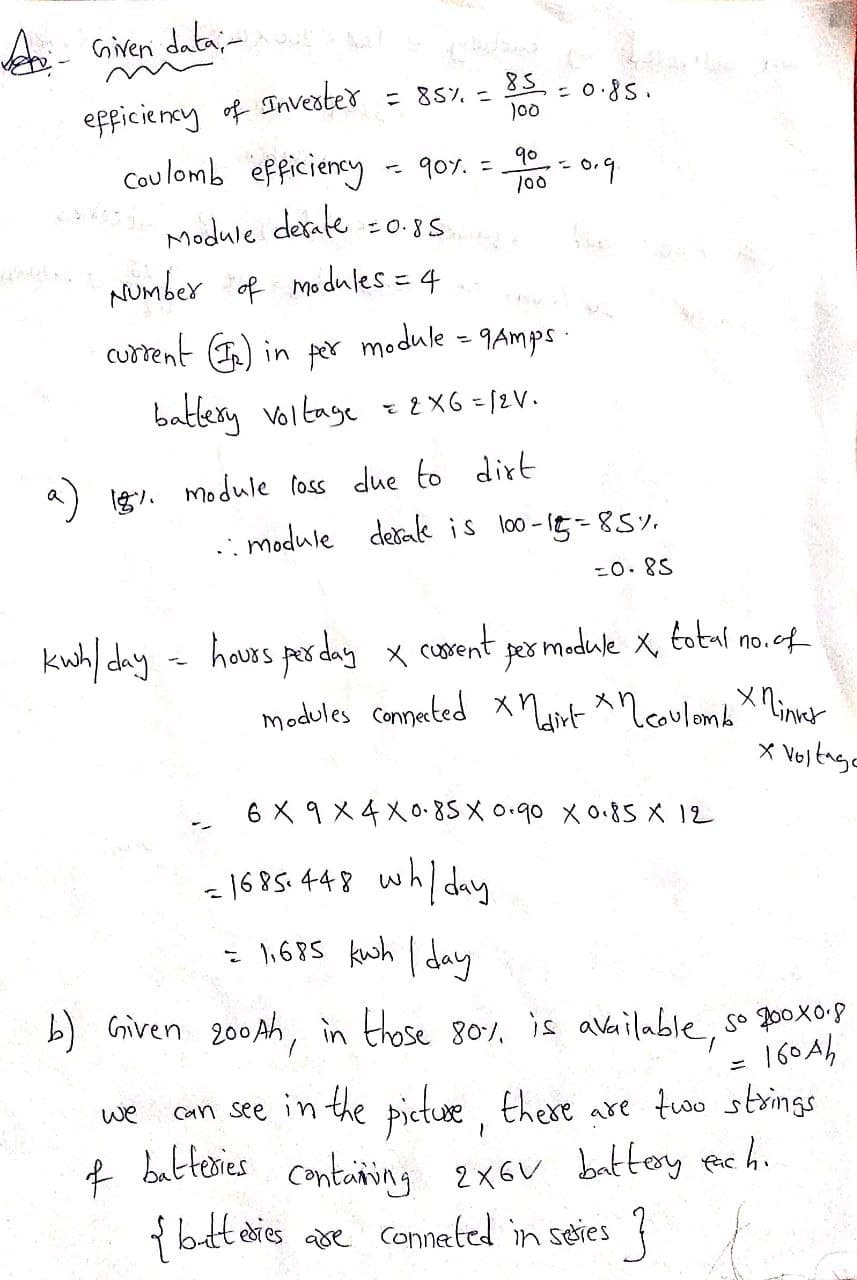 Ans:- Given data;-
efficiency of Inverter = 85% = 85/100 = 0.85.
Coulomb efficiency = 90% = 90/100 = 0.9
Module derate = 0.85
Number of modules = 4
current (IR) in per module = 9Amps.
battery voltage = 2X6 = 12V.
a) 15% module loss due to dirt
∴ module derate is 100-15 = 85%
=0.85
kwh/day = hours per day x current per module x total no. of
modules connected x ηdirt x ηcoulomb x ηinver
x voltage
= 6 X 9 X 4 X 0.85 X 0.90 X 0.85 X 12
= 1685.448 wh/day
= 1.685 kwh/day
b) Given 200Ah, in those 80% is available, so 200X0.8
= 160Ah
we can see in the picture, there are two strings
of batteries containing 2X6V battery each.
{batteries are connected in series}